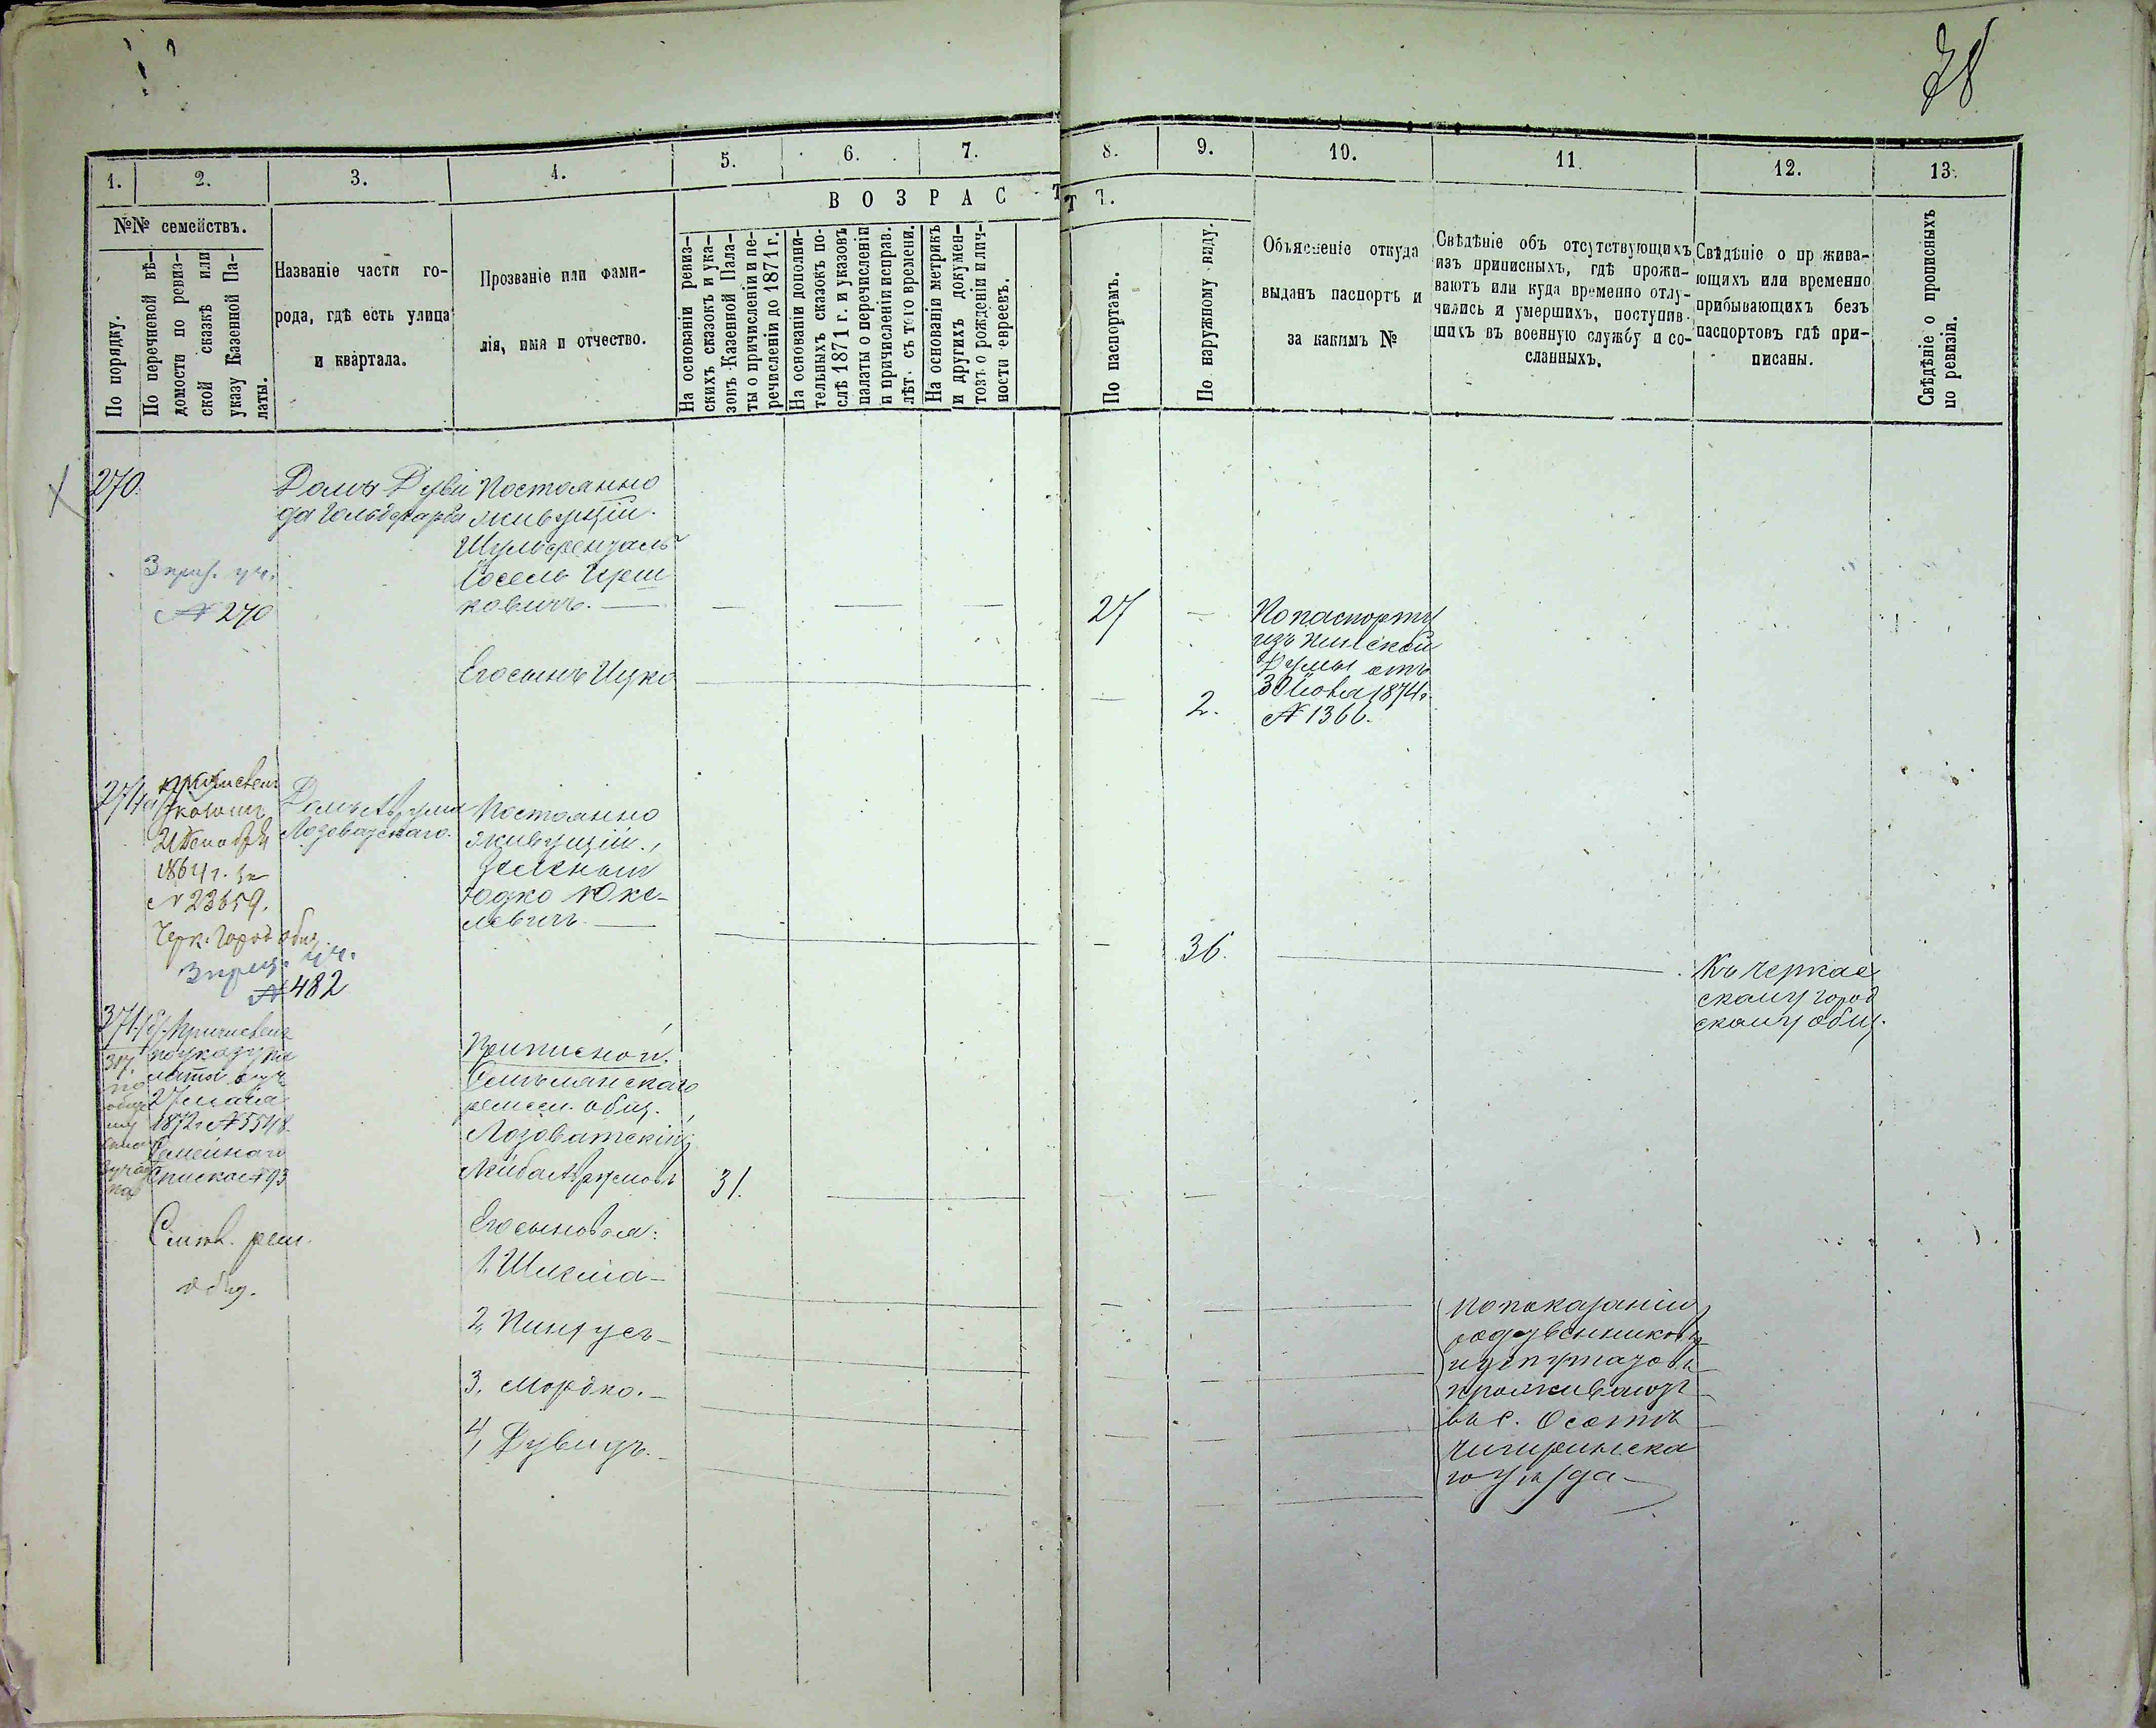 78
1.
2.
3.
4.
5.
6.
7.
8.
9.
10.
11.
12.
13.
№№ семействъ.
ВОЗРАСТ
Т Ъ.
По порядку.
По перечневой вѣ-
домости по ревиз-
ской сказкѣ или
указу Казенной Па-
латы.
Названіе части го-
рода, гдѣ есть улица
и квартала.
Прозваніе или фами-
лія, имя и отчество.
На основаніи ревиз-
скихъ сказокъ и ука-
зовъ Казенной Пала-
ты о причисленіи и пе-
речисленіи до 1871 г.
На основаніи дополни-
тельныхъ сказокъ по-
слѣ 1871 г. и указовъ
палаты о перечисленіи
и причисленіи исправ.
лѣт. съ того времени.
На основаніи метрикъ
и другихъ докумен-
товъ о рожденіи и лич-
ности евреевъ.
По паспортамъ.
По наружному виду.
Объясненіе откуда
выданъ паспортъ и
за какимъ №
Свѣдѣніе объ отсутствующихъ
изъ приписныхъ, гдѣ прожи-
ваютъ или куда временно отлу-
чились и умершихъ, поступив-
шихъ въ военную службу и со-
сланныхъ.
Свѣдѣніе о прожива-
ющихъ или временно
прибывающихъ безъ
паспортовъ гдѣ при-
писаны.
Свѣдѣніе о прописныхъ
по ревизіи.
270.
3 приз. уч.
№ 270
Домъ Дуви
да Гольдфарба
Постоянно
живущій.
Шульфенгаль
Іосель Ирш
ковичъ. —
27
По паспорту
изъ
Думы отъ
30 Нояб 1874 г.
№ 1366.
Его сынъ Ицко
2.
271/а
причислен
указомъ
21 Декабря
1864 г. за
№ 23659.
Черк. Город общ.
3 приз. уч.
№ 482
Домъ Абрума
Лозоватскаго.
Постоянно
живущій.
Зеленый
Юдко Юке-
левичъ. —
36.
Къ Черкас
скому город
скому общ.
271/б/
Причислен
по указу па
латы отъ
27 мая
1872 г. № 5548
Семейнаго
Списка № 93
Смѣл. рем.
общ.
Приписной.
Смѣлянскаго
ремесл. общ.
Лозоватскій
Лейба Абрумовъ
31.
Его сыновья:
1, Шлема —
2, Пинхусъ —
3. Мордко. —
4, Дувидъ. —
По показанію
родственниковъ
и депутатовъ
проживаютъ
въ с. Осотѣ
Чигиринска
го уѣзда —